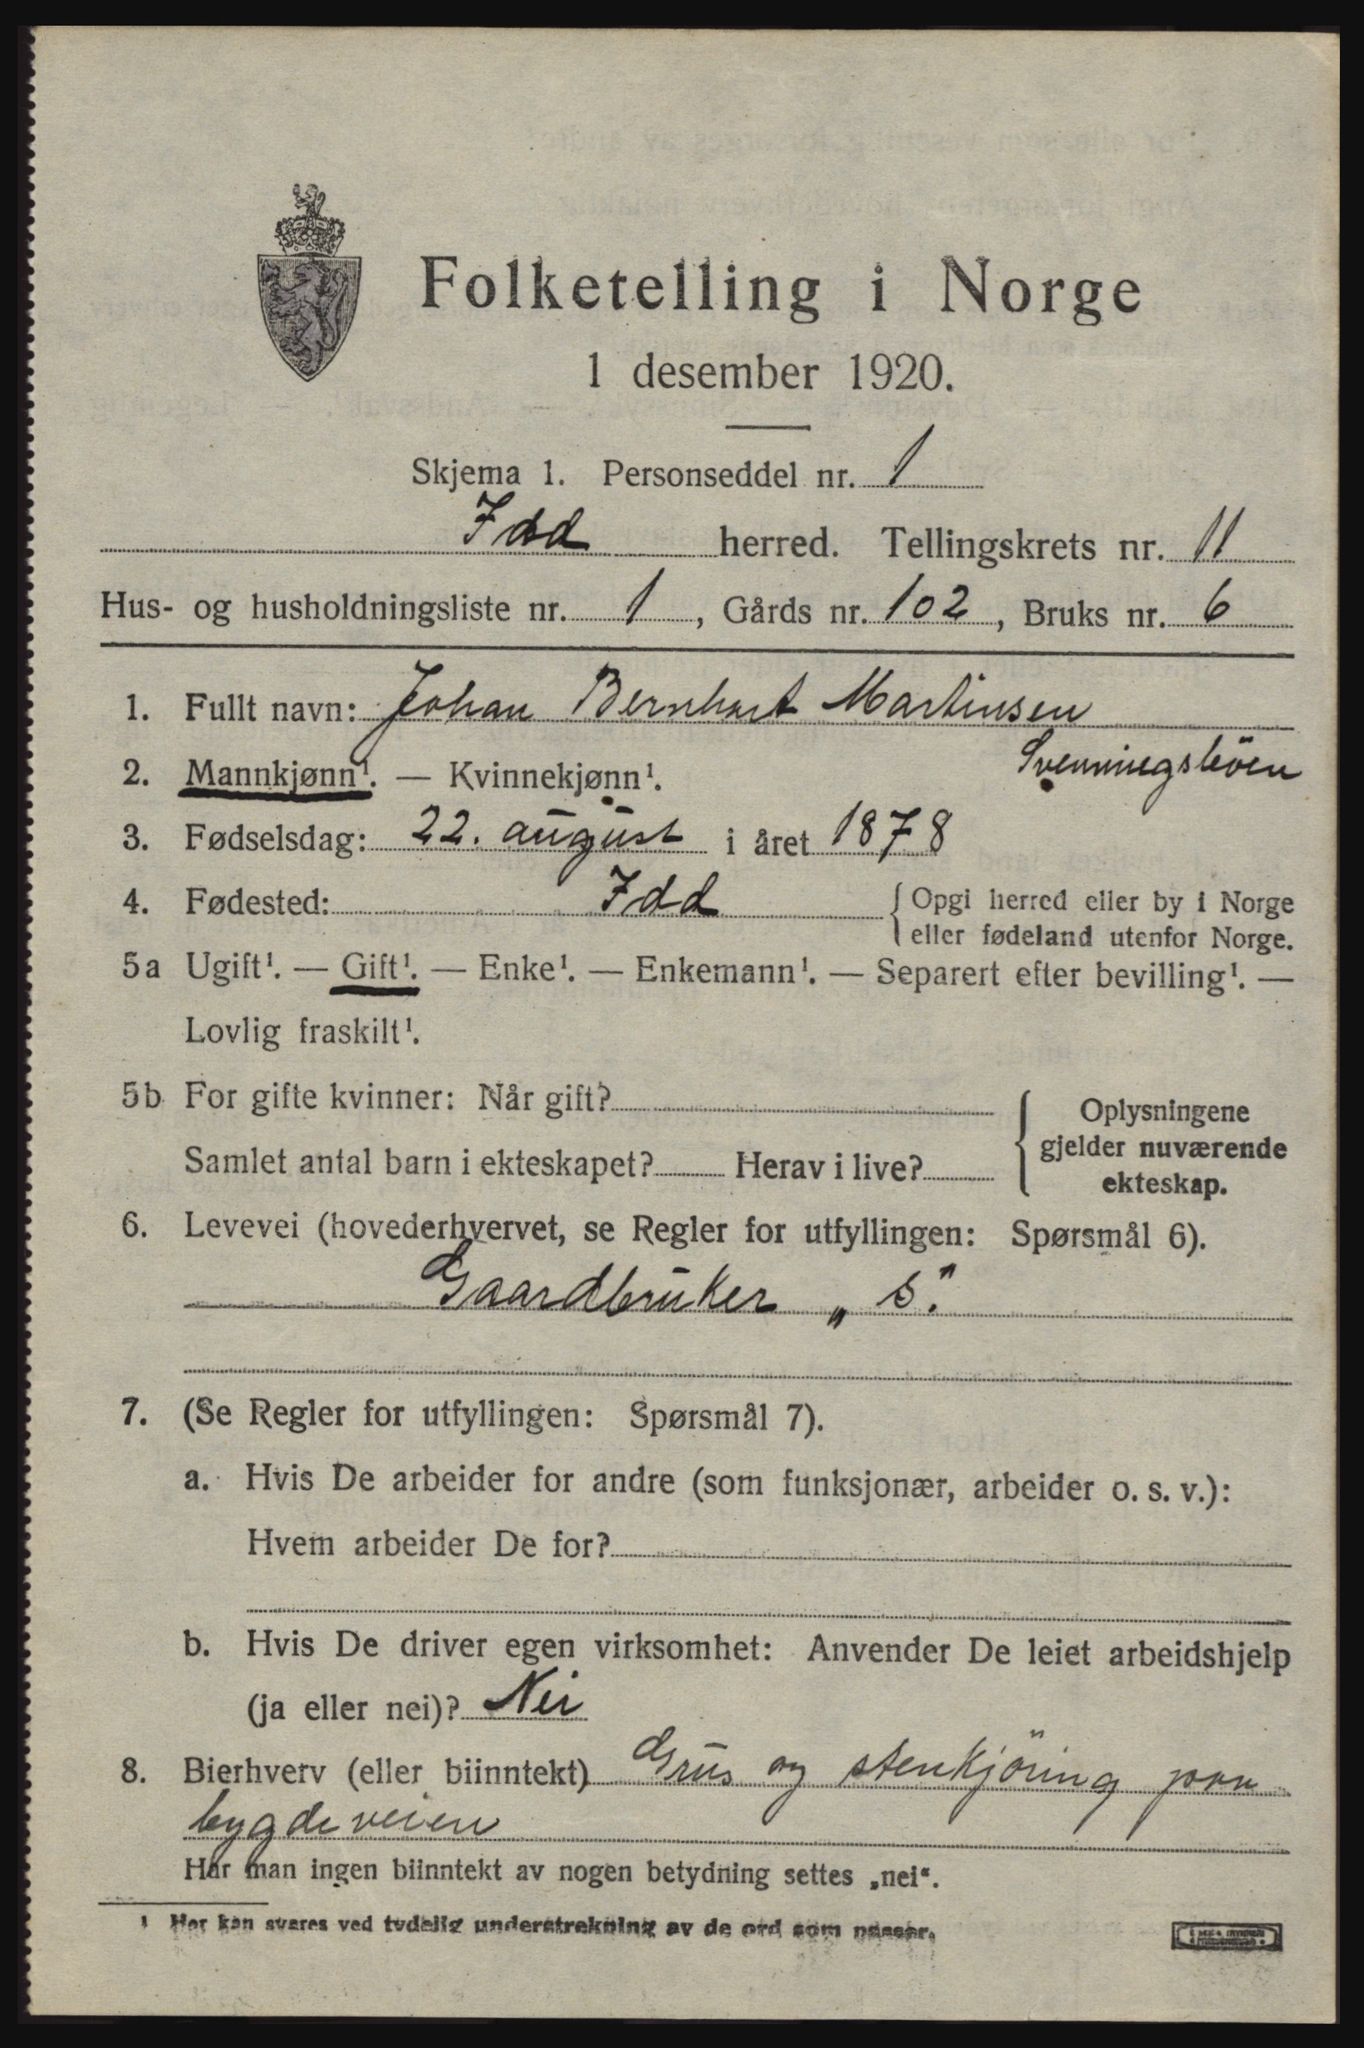 Folketelling i Norge
1 desember 1920.
Skjema 1. Personseddel nr. 1
Idd herred. Tellingskrets nr. 11
Hus- og husholdningsliste nr. 1, Gårds nr. 102, Bruks nr. 6
1. Fullt navn: Johan Bernhart Martinsen
2. Mannkjønn¹. — Kvinnekjønn¹.
3. Fødselsdag: 22. august i året 1878
4. Fødested: Idd { Opgi herred eller by i Norge
eller fødeland utenfor Norge.
5a Ugift¹. — Gift¹. — Enke¹. — Enkemann¹. — Separert efter bevilling¹. —
Lovlig fraskilt¹.
5b For gifte kvinner: Når gift?
Samlet antal barn i ekteskapet? Herav i live?
{ Oplysningene
gjelder nuværende
ekteskap.
6. Levevei (hovederhvervet, se Regler for utfyllingen: Spørsmål 6).
Gaardbruker „ S."
7. (Se Regler for utfyllingen: Spørsmål 7).
a. Hvis De arbeider for andre (som funksjonær, arbeider o. s. v.):
Hvem arbeider De for?
b. Hvis De driver egen virksomhet: Anvender De leiet arbeidshjelp
(ja eller nei)? Nei
8. Bierhverv (eller biinntekt) Grus og stenkjöring paa
bygdeveien
Har man ingen biinntekt av nogen betydning settes „nei“.
1 Her kan svares ved tydelig understrekning av de ord som passer.